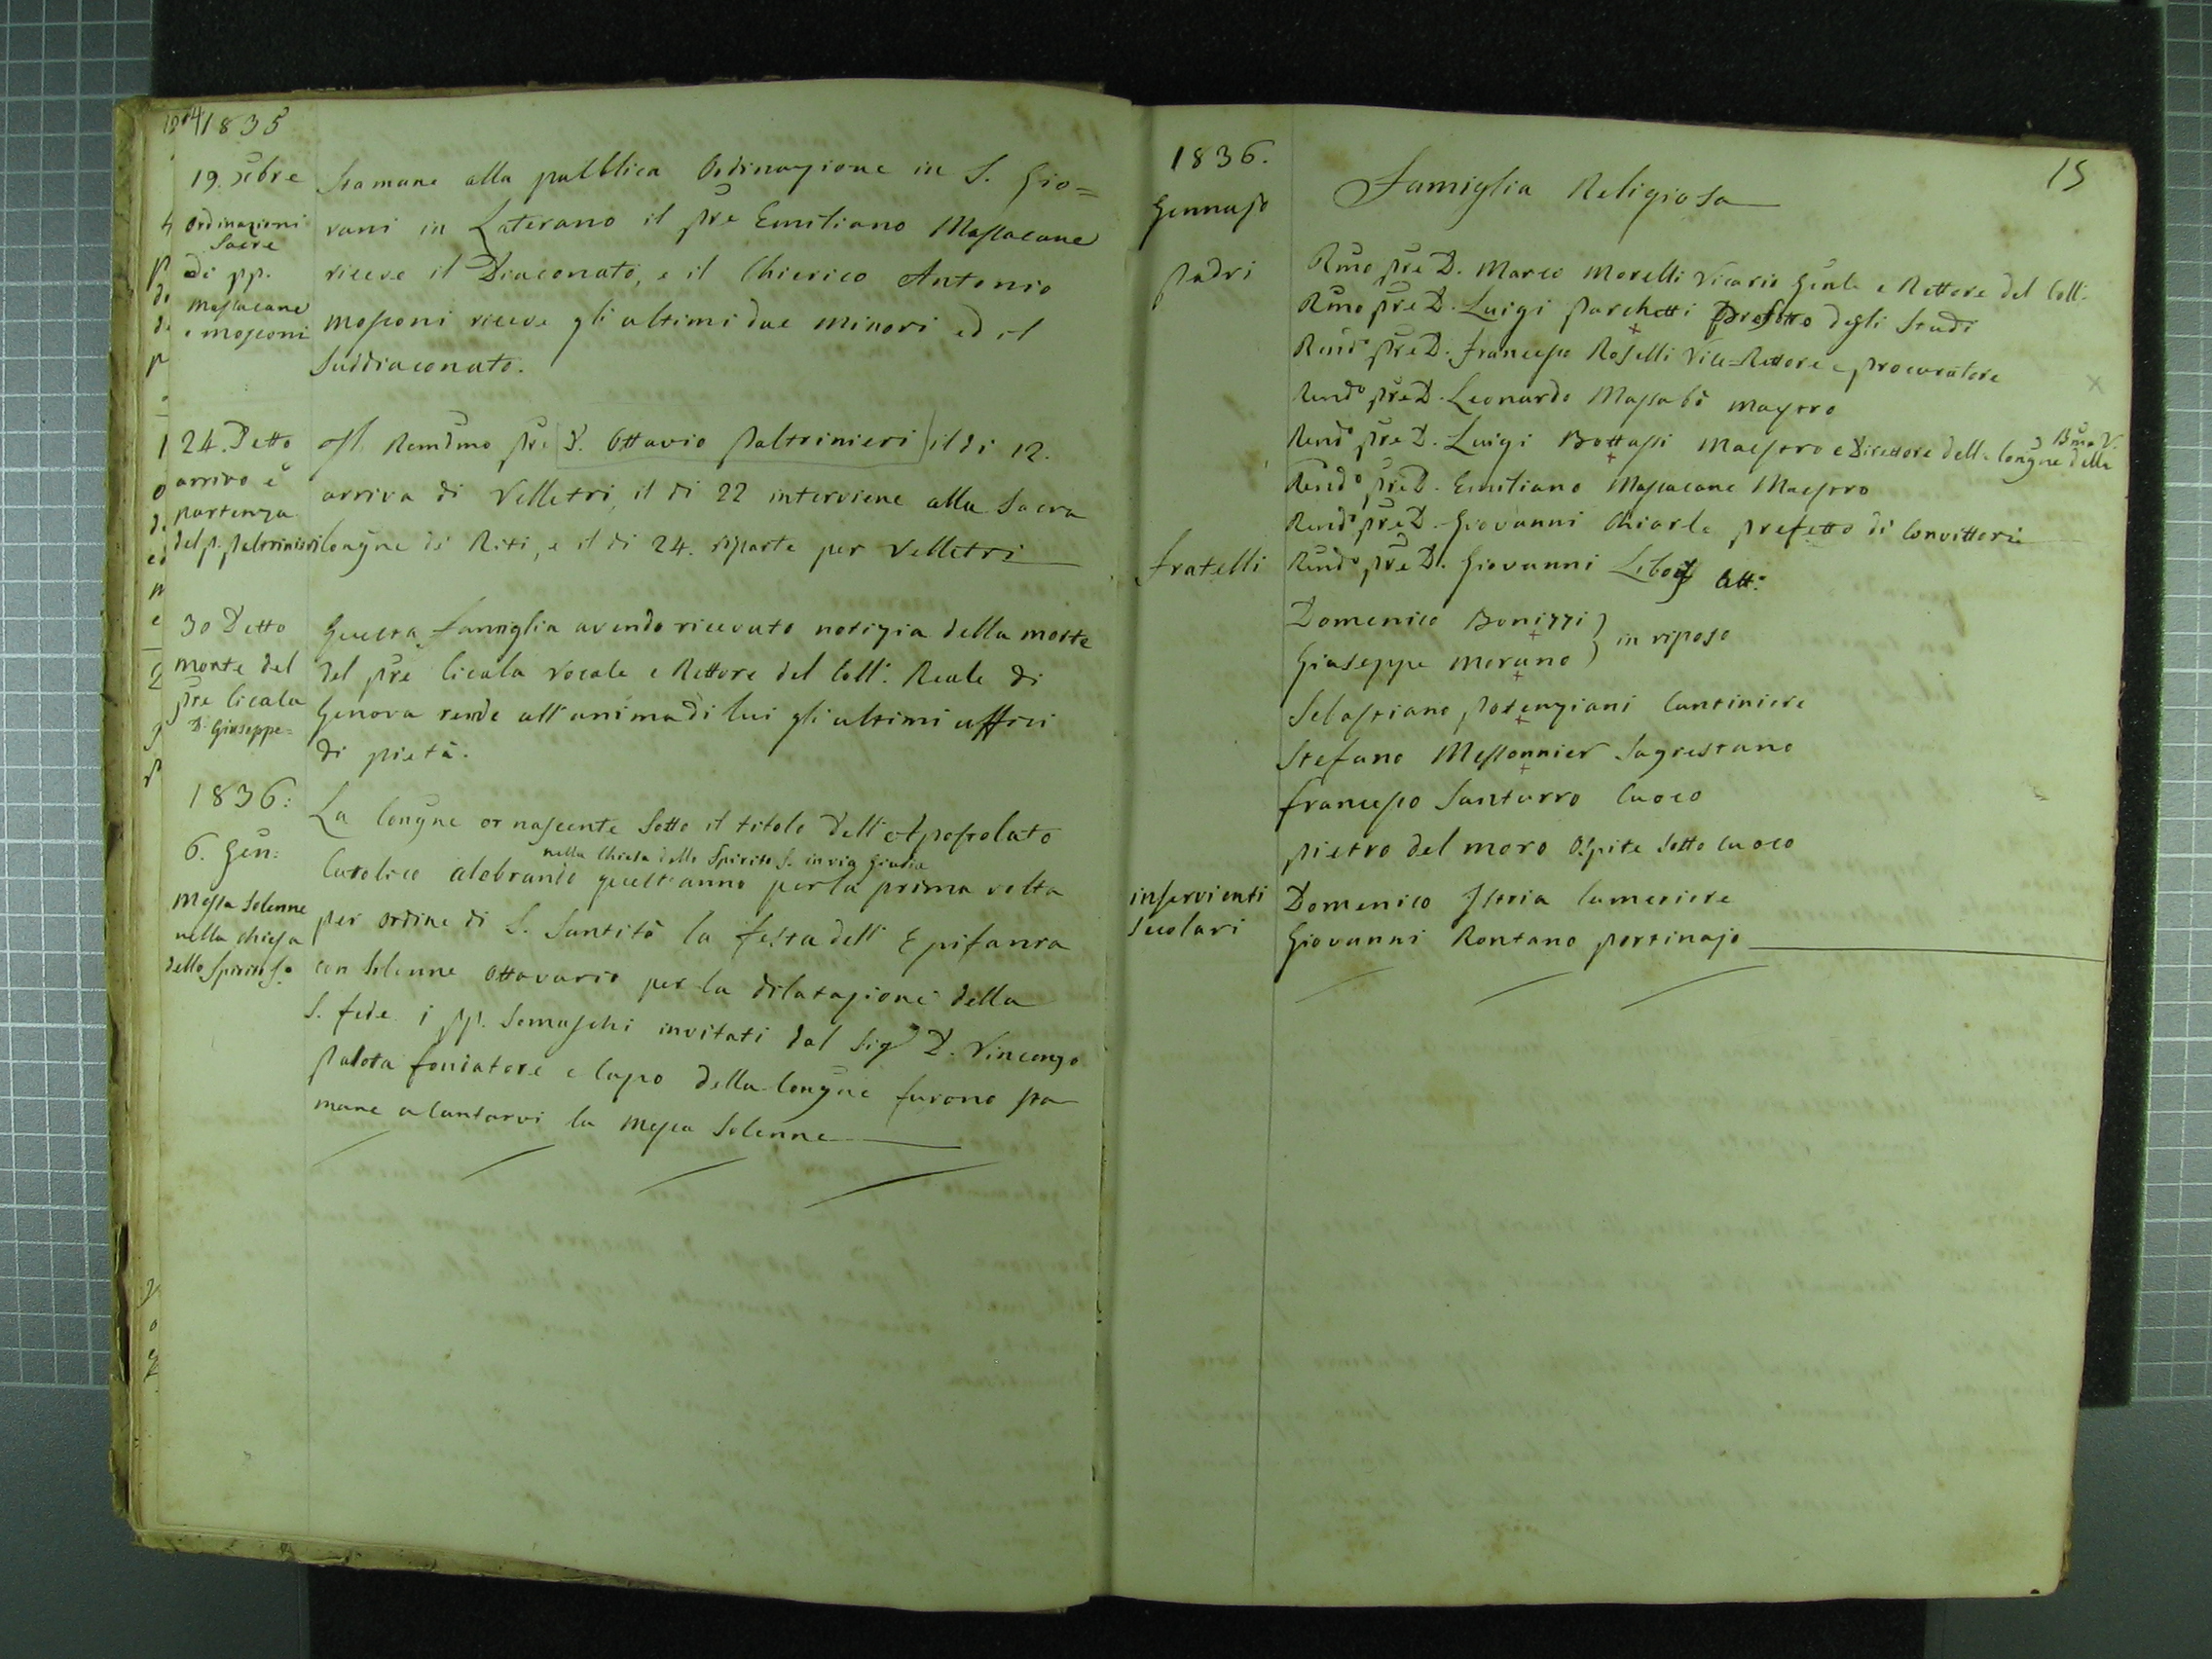 14
1835
19. Xbre
Ordinazioni
Sacre
di pp.
Massacane
e Mosconi
Stamane alla pubblica Ordinazione in S. Gio=
vani in Laterano il pre Emiliano Massacane
riceve il Diaconato, e il Chierico Antonio
Mosconi riceve gli ultimi due Minori ed il
Suddiaconato.
24. Detto
arrivo e
partenza
del p. Paltrinieri
Il Rendmo pre D. Ottavio Paltrinieri il di 12.
arriva di Velletri, il di 22 interviene alla Sacra
Congne di Riti, e il di 24. riparte per Velletri
30 Detto
Morte del
pre Cicala
D. Giuseppe=
Questa famiglia avendo ricevuto notizia della morte
del pre Cicala Vocale e Rettore del Coll. Reale di
Genova rende all'anima di lui gli ultimi uffici
di pietà.
1836:
6. Gen:
Messa Solenne
nella chiesa
dello Spirito So
La Congne or nascente sotto il titolo dell'Apostolato
nella Chiesa dello Spirito S. in via Giulia
Catolico celebrando quest'anno per la prima volta
per ordine di S. Santità la festa dell'Epifania
con Solenne Ottavario per la dilatazione della
S. fede i pp. Somaschi invitati dal Sigr D. Vincenzo
Palota fondatore e Capo della Congne furono sta
mane a Cantarvi la Messa Solenne
15
1836.
Gennajo
Famiglia Religiosa
Padri
Rmo pre D. Marco Morelli Vicario Genle e Rettore del Coll.
Rmo pre D. Luigi Parchetti Prefetto degli Studi
Rendo pre D. Francesco Roselli Vice=Rettore e Procuratore
Rendo pre D. Leonardo Massabò Maestro
Rendo pre D. Luigi Bottassi Maestro e Direttore della Congne della Bma V.
Rendo pre D. Emiliano Massacane Maestro
Rendo pre D. Giovanni Chiarle prefetto di Convittori
Rendo pre D. Giovanni Liboj Att.
Fratelli
Domenico Bonizzi
Giuseppe Morano } in riposo
Sebastiano Potenziani Cantiniere
Stefano Messonnier Sagrestano
Francesco Santurro Cuoco
Pietro del Moro Ospite Sotto Cuoco
inservienti
Secolari
Domenico Istria Cameriere
Giovanni Rontano portinajo